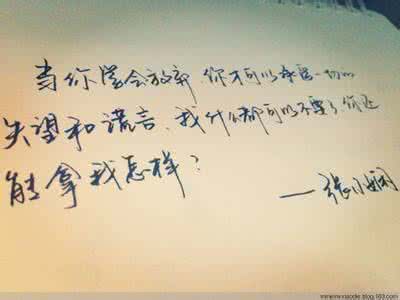 当你学会放弃 你才可以承受一切的
失望和谎言、我什么都可以不要了你还
能拿我怎样？
——张小娴